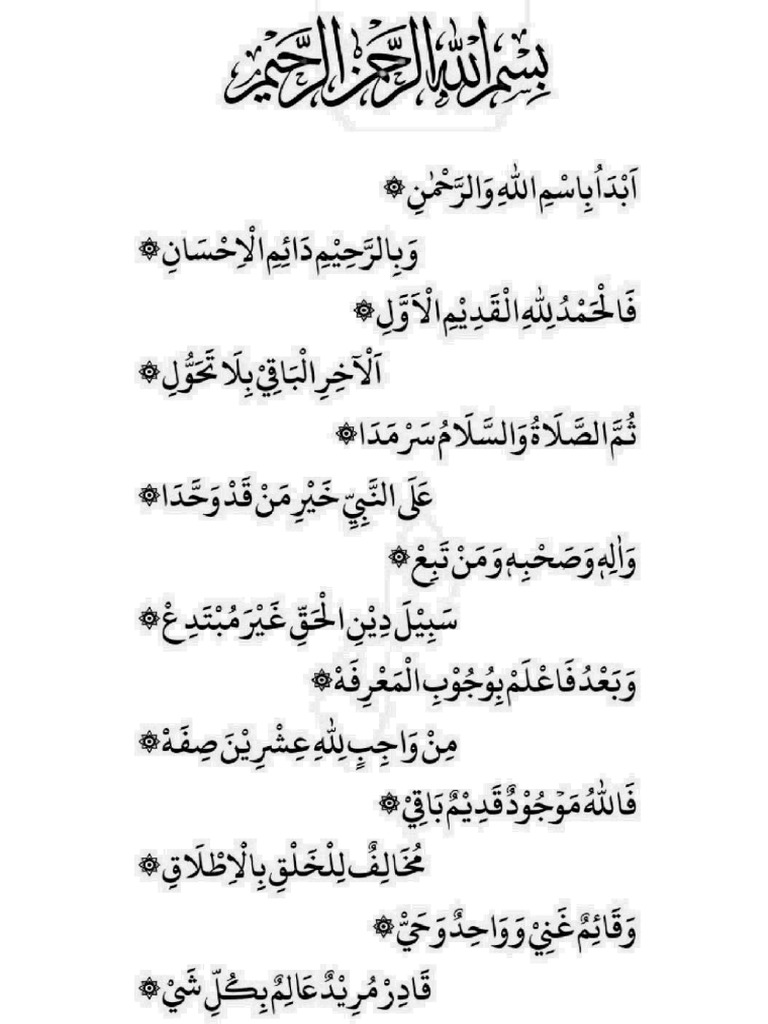 بِسْمِ اللهِ الرَّحْمٰنِ الرَّحِيْمِ
اَبْدَأُ بِاسْمِ اللهِ وَالرَّحْمٰنِ ۞
وَبِالرَّحِيْمِ دَائِمِ الْاِحْسَانِ ۞
فَالْحَمْدُ لِلّٰهِ الْقَدِيْمِ الْاَوَّلِ ۞
اَلْآخِرِ الْبَاقِيْ بِلَا تَحَوُّلِ ۞
ثُمَّ الصَّلَاةُ وَالسَّلَامُ سَرْمَدَا ۞
عَلَى النَّبِيِّ خَيْرِ مَنْ قَدْ وَحَّدَا ۞
وَاٰلِهٖ وَصَحْبِهٖ وَمَنْ تَبِعْ ۞
سَبِيْلَ دِيْنِ الْحَقِّ غَيْرَ مُبْتَدِعْ ۞
وَبَعْدُ فَاعْلَمْ بِوُجُوْبِ الْمَعْرِفَهْ ۞
مِنْ وَاجِبٍ لِلّٰهِ عِشْرِيْنَ صِفَهْ ۞
فَاللهُ مَوْجُوْدٌ قَدِيْمٌ بَاقِيْ ۞
مُخَالِفٌ لِلْخَلْقِ بِالْاِطْلَاقِ ۞
وَقَائِمٌ غَنِيْ وَوَاحِدٌ وَحَيّْ ۞
قَادِرْ مُرِيْدٌ عَالِمٌ بِكُلِّ شَيْ ۞